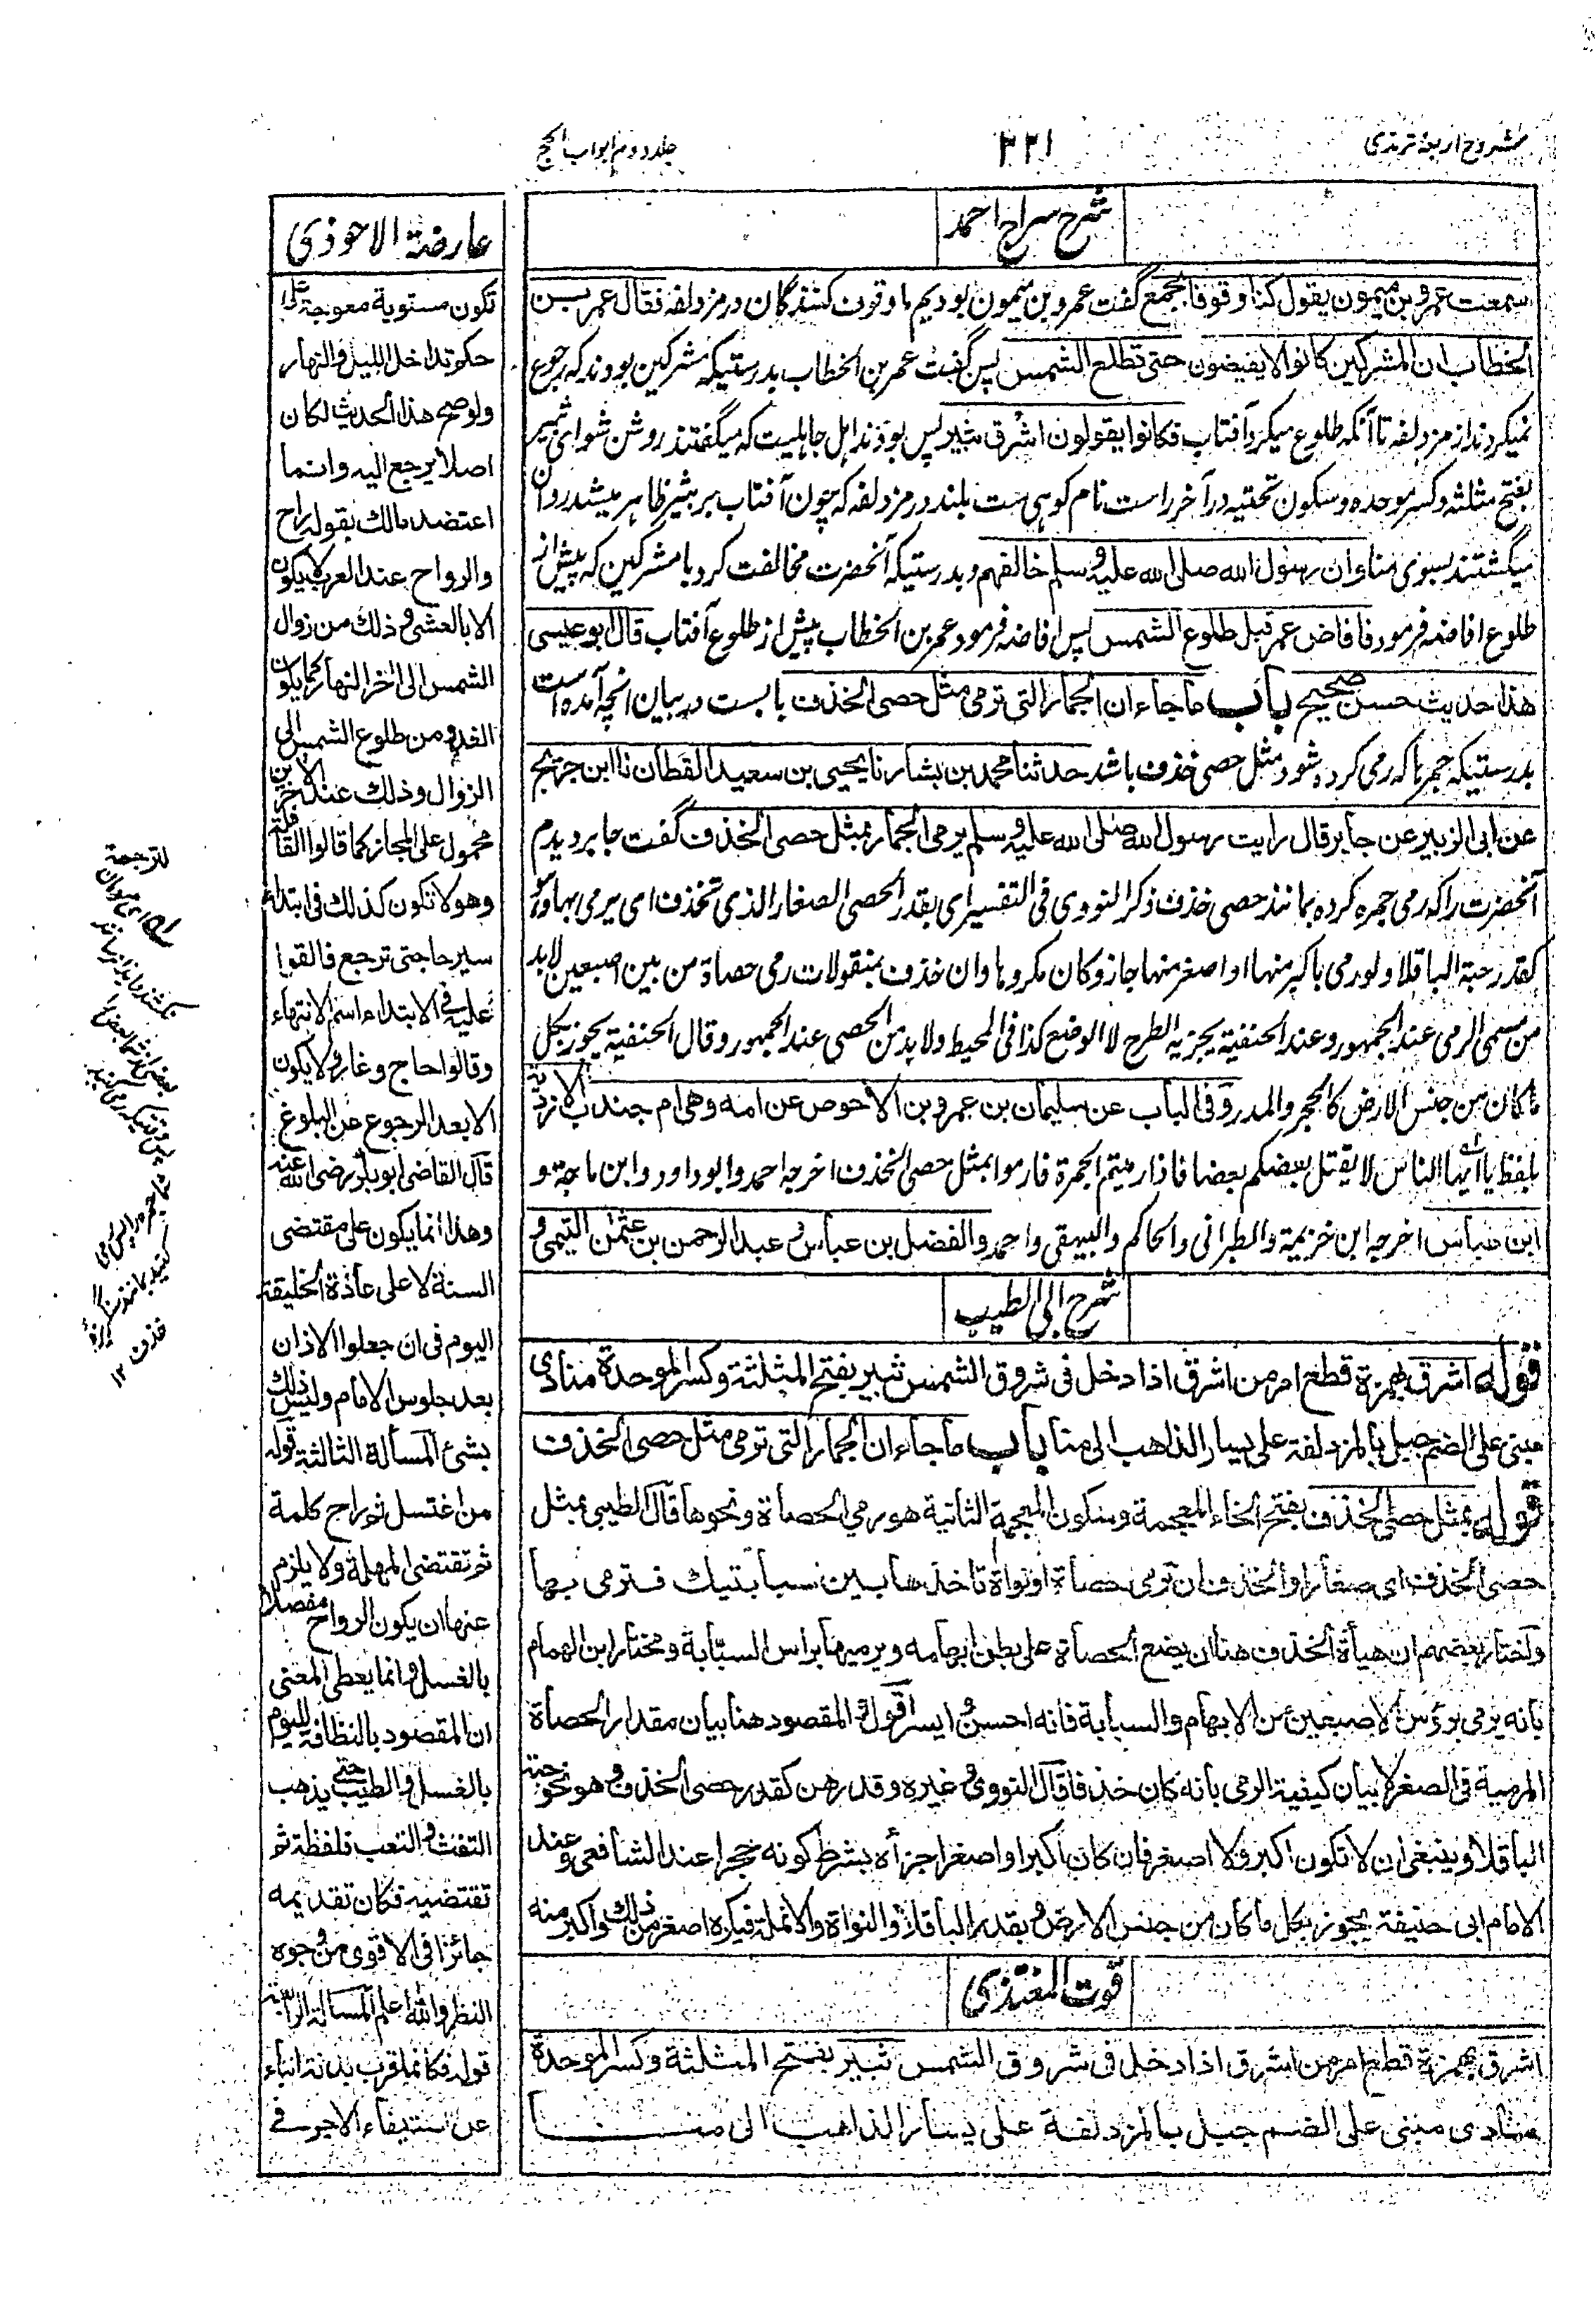 شروح اربعۀ ترمذی
۲۲۱
جلد دوم ابواب الحج
شرح سراج احمد
سمعت عمرو بن میمون یقول کنا وقوفا بجمع گفت عمرو بن میمون بودیم ما وقوف کنندگان در مزدلفه فقال عمر بن
الخطاب ان المشرکین کانوا لا یفیضون حتی تطلع الشمس پس گفت عمر بن الخطاب بدرستیکه مشرکین بودند که رجوع
نمیکردند از مزدلفه تا آنکه طلوع میکرد آفتاب فکانوا یقولون اشرق ثبیر پس بودند اهل جاهلیت که میگفتند روشن شو ای ثبیر
بفتح مثلثه و کسر موحده و سکون تحتیه در آخر راست نام کوهی ست بلند در مزدلفه که چون آفتاب بر ثبیر ظاهر میشد روان
میگشتند بسوی منا وان رسول الله صلی الله علیه وسلم خالفهم و بدرستیکه آنحضرت مخالفت کرد با مشرکین که پیش از
طلوع افاضه فرمود فافاض عمر قبل طلوع الشمس پس افاضه فرمود عمر بن الخطاب پیش از طلوع آفتاب قال ابو عیسی
هذا حدیث حسن صحیح باب ما جاء ان الجمار التی ترمی مثل حصی الخذف بابست در بیان آنچه آمده است
بدرستیکه جمرها که رمی کرده شود مثل حصی خذف باشد حدثنا محمد بن بشار نا یحیی بن سعید القطان نا ابن جریج
عن ابی الزبیر عن جابر قال رایت رسول الله صلی الله علیه وسلم یرمی الجمار بمثل حصی الخذف گفت جابر دیدم
آنحضرت را که رمی جمره کرده بمانند حصی خذف ذکر النووی فی التفسیر ای بقدر الحصی الصغار الذی تخذف ای یرمی بها وهو
کقدر حبة الباقلا ولو رمی باکبر منها او اصغر منها جاز وکان مکروها وان خذف بمنقولات رمی حصاة من بین اصبعین لا بد
من مسمی الرمی عند الجمهور وعند الحنفیة یجزیه الطرح لا الوضع کذا فی المحیط ولا بد من الحصی عند الجمهور وقال الحنفیة یجوز بکل
ما کان من جنس الارض کالحجر والمدر وفی الباب عن سلیمان بن عمرو بن الاحوص عن امه وهی ام جندب الازدیة
بلفظ یا ایها الناس لا یقتل بعضکم بعضا فاذا رمیتم الجمرة فارموا بمثل حصی الخذف اخرجه احمد وابوداود وابن ماجة و
ابن عباس اخرجه ابن خزیمة والطبرانی والحاکم والبیهقی واحمد والفضل بن عباس و عبد الرحمن بن عثمن التیمی و
شرح ابی الطیب
قوله اشرق بهمزة قطع امر من اشرق اذا دخل فی شروق الشمس ثبیر بفتح المثلثة وکسر الموحدة منادی
مبنی علی الضم جبل بالمزدلفة علی یسار الذاهب الی منا باب ما جاء ان الجمار التی ترمی مثل حصی الخذف
قوله بمثل حصی الخذف بفتح الخاء المعجمة وسکون المعجمة الثانیة هو رمی الحصاة ونحوها قال الطیبی بمثل
حصی الخذف ای صغارا والخذف ان ترمی حصاة او نواة تاخذها بین سبابتیك فترمی بها
واختار بعضهم ان هیأة الخذف هنا ان یضع الحصاة علی بطن ابهامه ویرمیها براس السبّابة ومختار ابن الهمام
بانه یرمی برؤس الاصبعین من الابهام والسبابة فانه احسن و ایسر اقول المقصود هنا بیان مقدار الحصاة
المرمیة فی الصغر لا بیان کیفیة الرمی بانه کان خذفا قال النووی و غیره وقدرهن کقدر حصی الخذف و هو نحو حبة
الباقلا وینبغی ان لا تکون اکبر ولا اصغر فان کان اکبر او اصغر اجزأه بشرط کونه حجرا عند الشافعی وعند
الامام ابی حنیفة یجوز بکل ما کان من جنس الارض و بقدر الباقلاء والنواة والانملة فیکره اصغر من ذلك واکبر منه
قوت المغتذی
اشرق بهمزة قطع امر من اشرق اذا دخل فی شروق الشمس ثبیر بفتح المثلثة وکسر الموحدة
منادی مبنی علی الضم جبل بالمزدلفة علی یسار الذاهب الی منا
عارضة الاحوذی
تکون مستویة معوجة علی
حکم تداخل اللیل والنهار
ولو صح هذا الحدیث لکان
اصلا یرجع الیه وانما
اعتضد مالك بقوله راح
والرواح عند العرب لا یکون
الا بالعشی وذلك من زوال
الشمس الی اخر النهار کما یکون
الغدو من طلوع الشمس الی
الزوال وذلك عند الاخرین
محمول علی المجاز کما قالوا القافلة
وهو لا تکون کذلك فی ابتداء
سیرها حتی ترجع فالقوا
علیه فی الابتداء اسم الانتهاء
وقالوا حاج وغاز ولا یکون
الا بعد الرجوع عن البلوغ
قال القاضی ابوبکر رضی الله عنه
وهذا انما یکون علی مقتضی
السنة لا علی عادة الخلیقة
الیوم فی ان جعلوا الاذان
بعد جلوس الامام ولیس ذلك
بشئ المسألة الثالثة قوله
من اغتسل ثم راح کلمة
ثم تقتضی المهلة ولا یلزم
عنها ان یکون الرواح مفصلا
بالغسل وانما یعطی المعنی
ان المقصود بالنظافة للیوم
بالغسل والطیب حتی یذهب
التفث والتعب فلفظة ثم
تقتضیه فکان تقدیمه
جائزا فی الاقوی من وجوه
النظر والله اعلم المسألة الرابعة
قوله فکانما قرب بدنة انباء
عن استیفاء الاجر فی
للترجمة
کنید بمانند سنگریزه
خذف ۱۲